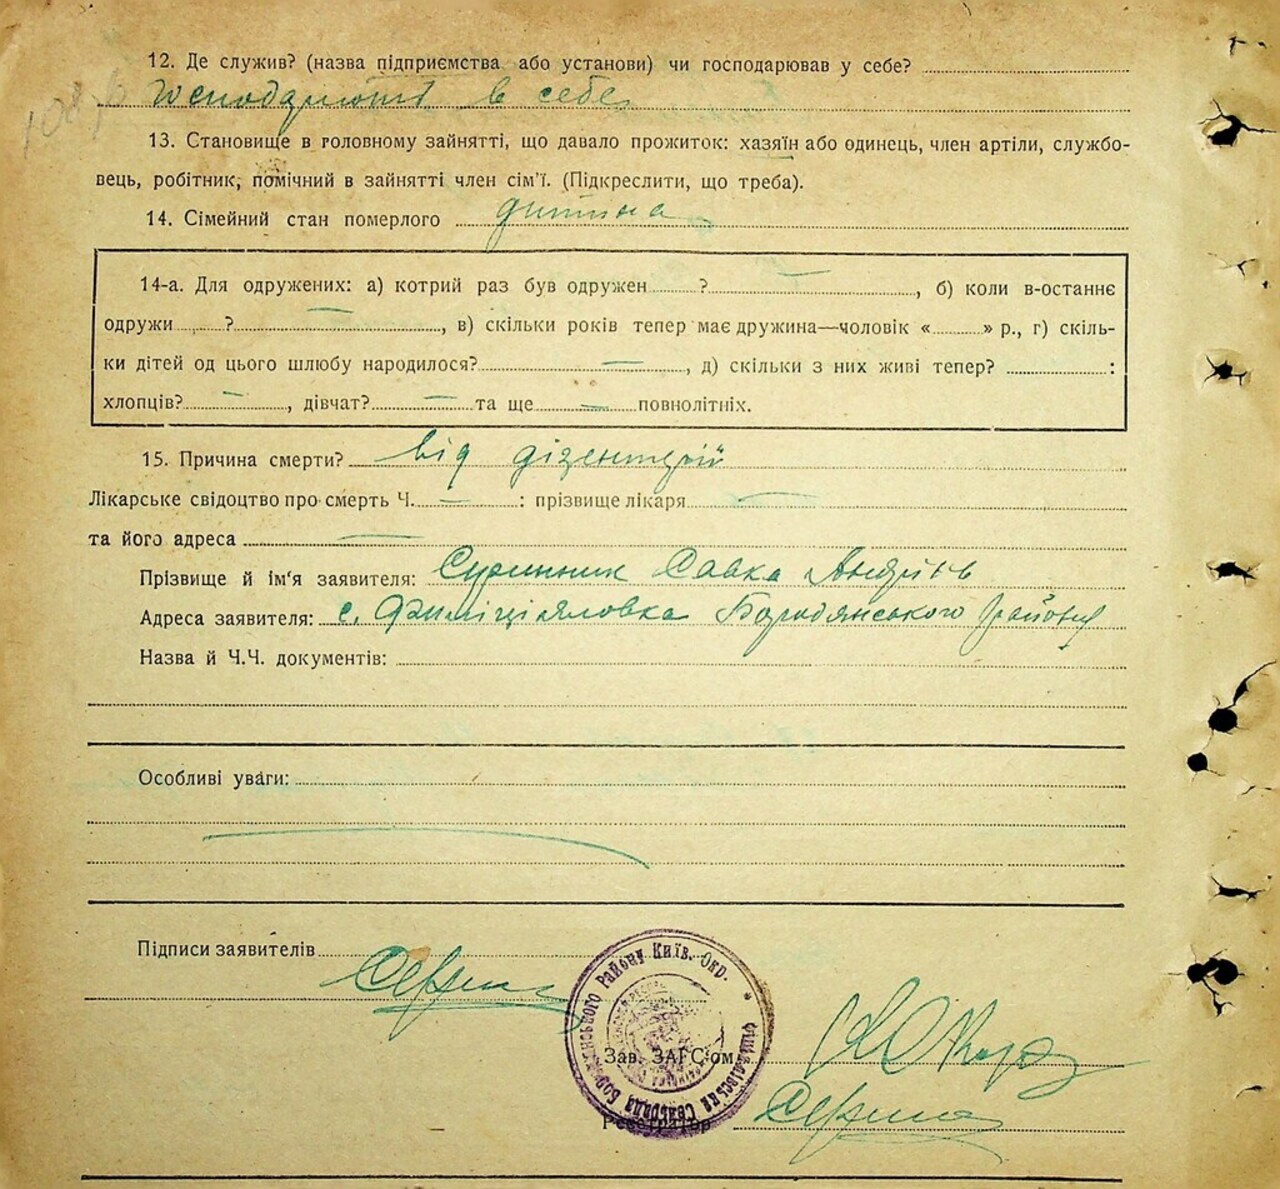 12. Де служив? (назва підприємства або установи) чи господарював у себе?
в себе
13. Становище в головному зайнятті, що давало прожиток: хазяїн або одинець, член артіли, службо-
вець, робітник, помічний в зайнятті член сім'ї. (Підкреслити, що треба).
14. Сімейний стан померлого дитина
14-а. Для одружених: а) котрий раз був одружен ? , б) коли в-останнє
одружи ? , в) скільки років тепер має дружина—чоловік « » р., г) скіль-
ки дітей од цього шлюбу народилося? , д) скільки з них живі тепер? :
хлопців? , дівчат? та ще повнолітніх.
15. Причина смерти? від дізентерії
Лікарське свідоцтво про смерть Ч. : прізвище лікаря
та його адреса
Прізвище й ім'я заявителя: Савка
Адреса заявителя: с. Бородянського району
Назва й Ч.Ч. документів:
Особливі уваги:
Підписи заявителів
Району Київ. Окр.
Сельрада
Зав. ЗАГС'ом
Реєстратор